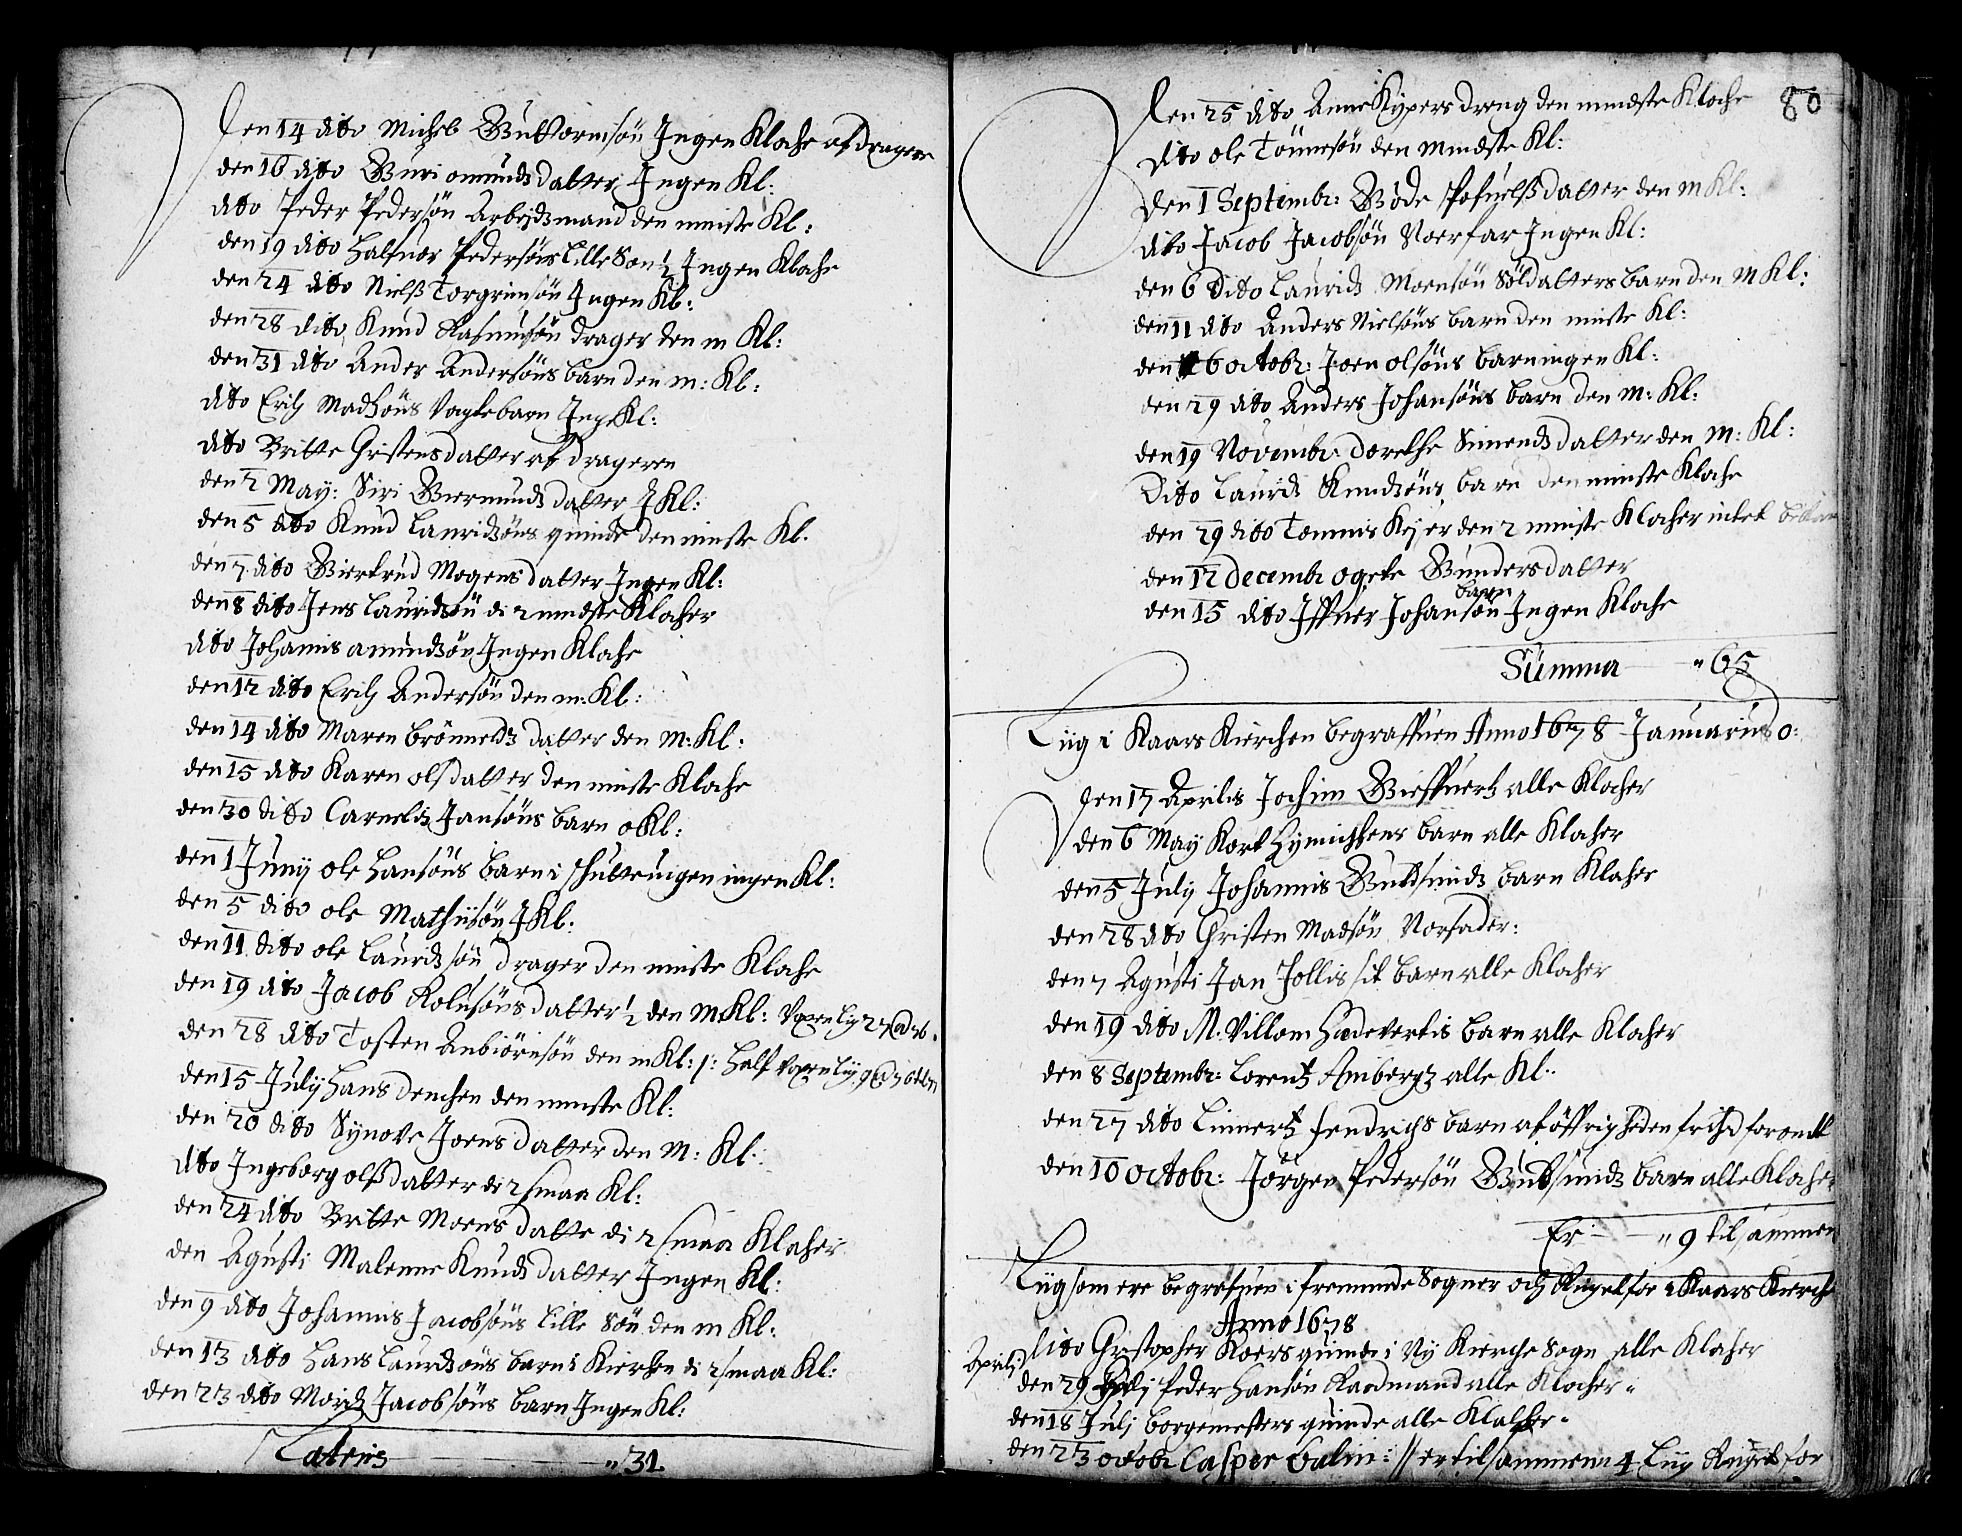 Den 14 dito Michel Guttormsøn Ingen Klocke af dragere
den 16 dito Guri omunds datter Ingen Kl:
dito Peder Pedersøn Arbejdsmand den minste Kl:
den 19 dito Halfuor Pedersøns Lille Søn ½ Ingen Klocke
den 24 dito Nielss Torgrimsøn Ingen Kl:
den 28 dito Knud Rasmusøn drager den m Kl:
den 31 dito Ander Andersøns barn den m: Kl:
dito Erich Madsøns barn Ing Kl:
dito Britte Christensdatter af drageren
den 2 May: Siri Giermunds datter J Kl:
den 5 dito Knud Lauridsøns quinde den minste Kl.
den 7 dito Giertrud Mogensdatter Ingen Kl:
den 8 dito Jens Lauridsøn di 2 mindste Klocker
dito Johannis amundsøn Ingen Klocke
den 12 dito Erich Andersøn den m: Kl:
den 14 dito Maren datter den m: Kl:
den 15 dito Karen olsdatter den minste Klocke
den 30 dito Carnelis Jansøns barn o Kl:
den 1 Junij ole Hansøns barn i skuttuigen ingen Kl:
den 5 dito ole Mathisøn J Kl:
den 11 dito ole Lauridsøn drager den minste Klocke
den 19 dito Jacob Rolufsøns datter ½ den m Kl: Voxen lig
den 28 dito Tosten Anbiørnsøn den m Kl: half voxen lig
den 15 Julij Hans denchen den minste Kl:
den 20 dito Synove Joens datter den m: Kl:
dito Ingeborg olssdatter di 2 smaa Kl:
den 24 dito Britte Moens datte di 2 smaa Klocker
den Agusti Malenne Knuds datter Ingen Kl:
den 9 dito Johannis Jacobsøns Lille Søn den m Kl:
den 13 dito Hans Lauridsøns barn i Kiercken di 2 smaa Kl:
den 23 dito Morids Jacobsøns barn Ingen Kl:
Lateris " 31
80
Den 25 dito Anne Kypers dreng den mindste Klocke
dito ole Tønnesøn den mindste Kl:
Den 1 Septembr: Gøde datter den m Kl:
dito Jacob Jacobsøn Norfar Ingen Kl:
den 6 Dito Laurids Moensøn barn den m Kl:
den 11 dito Anders Nielsøns barn den minste Kl:
den 6 octobr: Joen olsøns barn ingen Kl:
den 29 dito Anders Johansøns barn den m: Kl:
den 19 Novembr: dorethe Simends datter den m: Kl:
Dito Laurids Knudsøns barn den minste Klocke
den 29 dito Tommis Kejer den 2 minste Klocker intet
den 12 decembr ogete Gunders datter
barn
den 15 dito Iffuer Johansøn Ingen Klocke
Summa " 65
Liig i Kaars Kierchen begraffuen Anno 1678 Januarius o:
den 17 Aprilis Jochim alle Klocker
den 6 May Kort barn alle Klocker
den 5 July Johannis Guldsmids barn Klocker
den 28 dito Christen Madsøn Norfader:
den 7 Agusti Jan Jollis sit barn alle Klocker
den 19 dito M. Villom barn alle Klocker
den 8 Septembr: Lorentz Ambergs alle Kl:
den 27 dito Linnertz fendrichs barn af øffrigheden
den 10 octobr: Jörgen Pedersøn Guldsmids barn alle Klocker
Er " 9 tilsammen
Liig som ere begrafuen i fremmede Sogner och Ringet for i Kaars Kierche
Anno 1678
Aprilis dito Christopher Koers quinde i Ny Kierche Sogn alle Klocker
den 29 Peder Hansøn Raadmand alle Klocker "
den 18 Julj borgemesters quinde alle Klocker "
den 23 octobr Casper Galm: // er tilsammen 4 Liig Ringet for